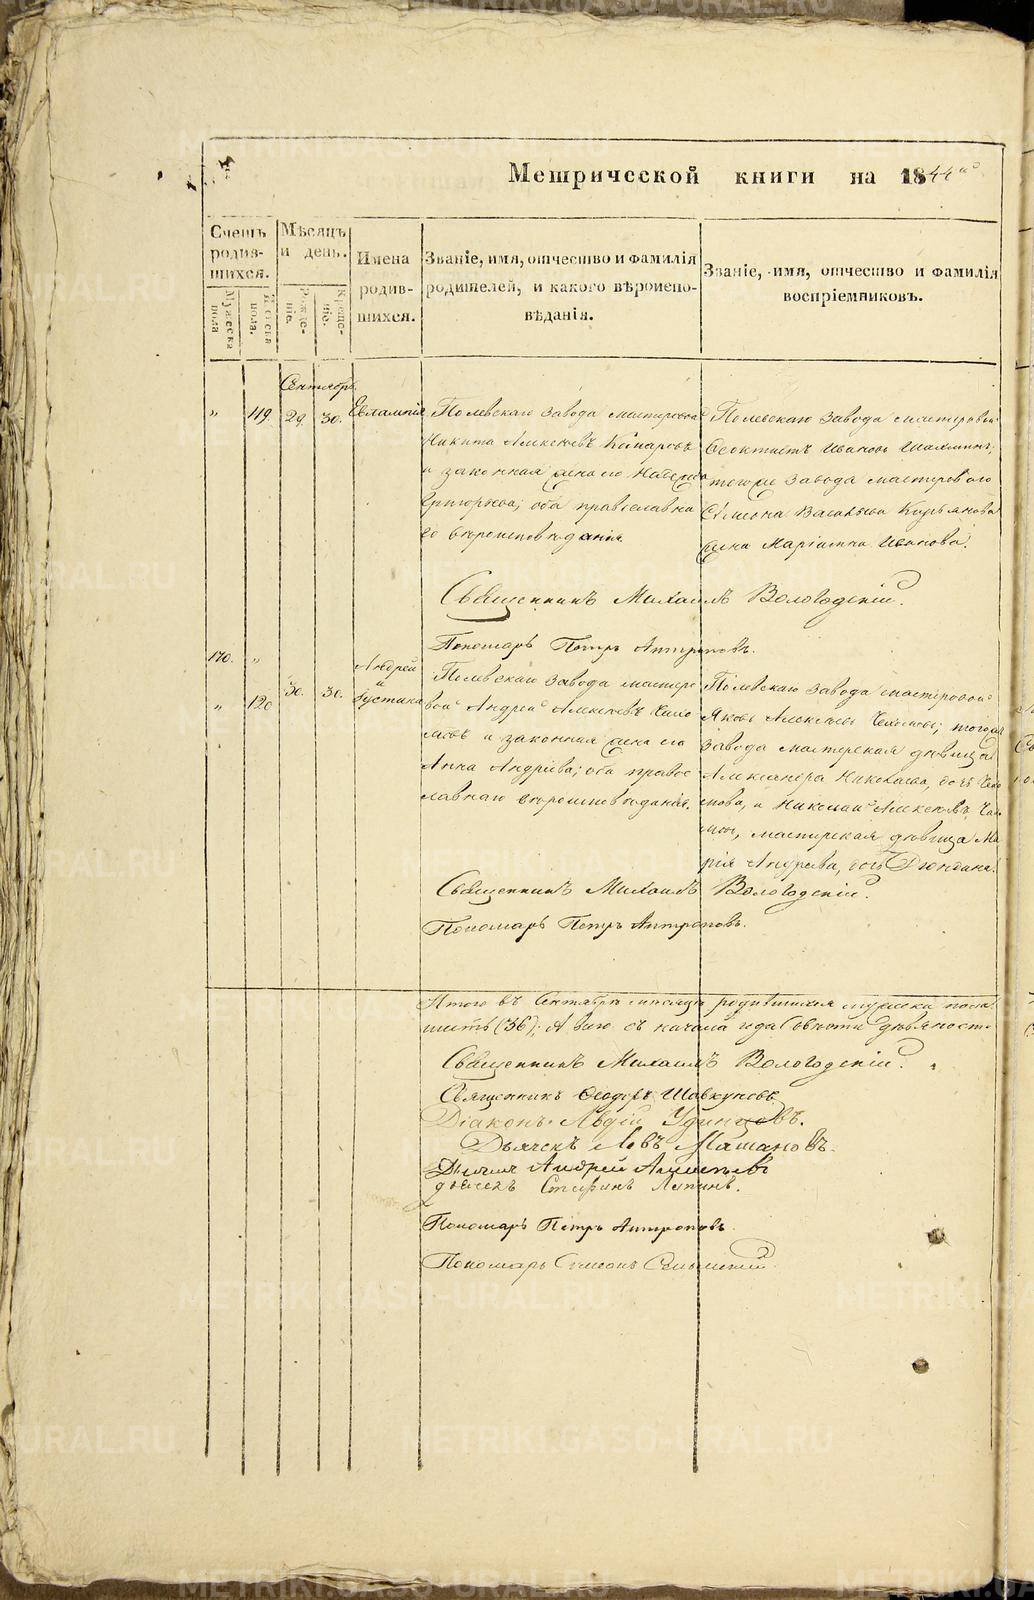 Метрической книги на 1844 й
Счетъ родившихся.
Мѣсяцъ и день.
Имена родившихся.
Званіе, имя, отчество и фамилія родителей, и какого вѣроисповѣданія.
Званіе, имя, отчество и фамилія воспріемниковъ.
Мужеска пола
Женска пола.
Рожденіе.
Крещеніе.
Сентябрь.
" 119. 29. 30. Евлампія
Полевскаго завода мастеровой
Никита Алексѣевъ Комаровъ
и законная жена его Надежда
Григорьева; оба православна
го вѣроисповѣданія.
Полевскаго завода мастеровой
Ѳеоктистъ Ивановъ Шахминъ,
тогоже завода мастероваго
Симеона Васильева Кирьянова
жена Маріамна Иванова.
Священникъ Михаилъ Вологодскій.
Пономарь Петръ Антроповъ.
170. "
" 120
30. 30.
Андрей
и
Іустина
Полевскаго завода мастеро
вой Андрей Алексѣевъ
и законная жена его
Анна Андреева; оба правос
лавнаго вѣроисповѣданія.
Полевскаго завода мастеровой
Яковъ Алексѣевъ тогоже
завода мастерская дѣвица
Александра Николаева, дочь
и Николай Алексѣевъ
мастерская дѣвица Ма
рія Андреева, дочь
Священникъ Михаилъ Вологодскій.
Пономарь Петръ Антроповъ.
Итого въ Сентябрѣ мѣсяцѣ родившихся мужеска пола
(36). А всего съ начала года
Священникъ Михаилъ Вологодскій.
Священникъ Ѳеодоръ Шавкуновъ
Діаконъ Авдій Удинцовъ.
Дьячекъ Левъ Мамановъ.
Дьячекъ Андрей
дьячекъ Стефанъ Ляпинъ.
Пономарь Петръ Антроповъ.
Пономарь Симеонъ
METRIKI.GASO-URAL.RU